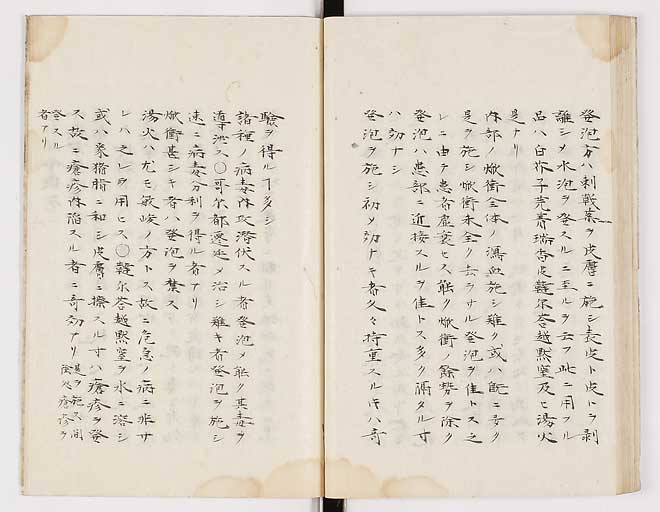 發泡方ハ刺戟藥ヲ皮膚ニ施シ表皮ト皮トヲ剥
離シメ水泡ヲ發スルニ至ルヲ云フ此ニ用フル
品ハ白芥子芫菁瑞香皮韃尓荅越黙窒及ヒ湯火
是ナリ
内部ノ焮衝全体ノ瀉血施シ難ク或ハ既ニ
是ヲ施シ焮衝未全ク去ラサル發泡ヲ佳トス之
レニ由テ患者虚衰セス能ク焮衝ノ餘勢ヲ除ク
發泡ハ患部ニ近接スルヲ佳トス多ク隔タル寸
ハ効ナシ
發泡ヲ施シ初メ効ナキ者久々持重スル寸ハ奇
驗ヲ得ル丁多シ
諸種ノ病毒内攻潜伏スル者發泡メ能ク其毒ヲ
導泄ス〇哥尓都遷延メ治シ難キ者發泡ヲ施シ
速ニ病毒分利ヲ得ル者アリ
焮衝甚シキ者ハ發泡ヲ禁ス
湯火ハ尤モ峻ノ方トス故ニ危急ノ病ニ非サ
レハ之レヲ用ヒス〇韃尓荅越黙窒ヲ水ニ溶シ
或ハ豕猪脂ニ和シ皮膚ニ擦スル寸ハ瘡疹ヲ發
ス故ニ瘡疹内陥スル者ニ奇効アリ 是ヲ施ス間
瘡疹ヲ
發スル
者アリ